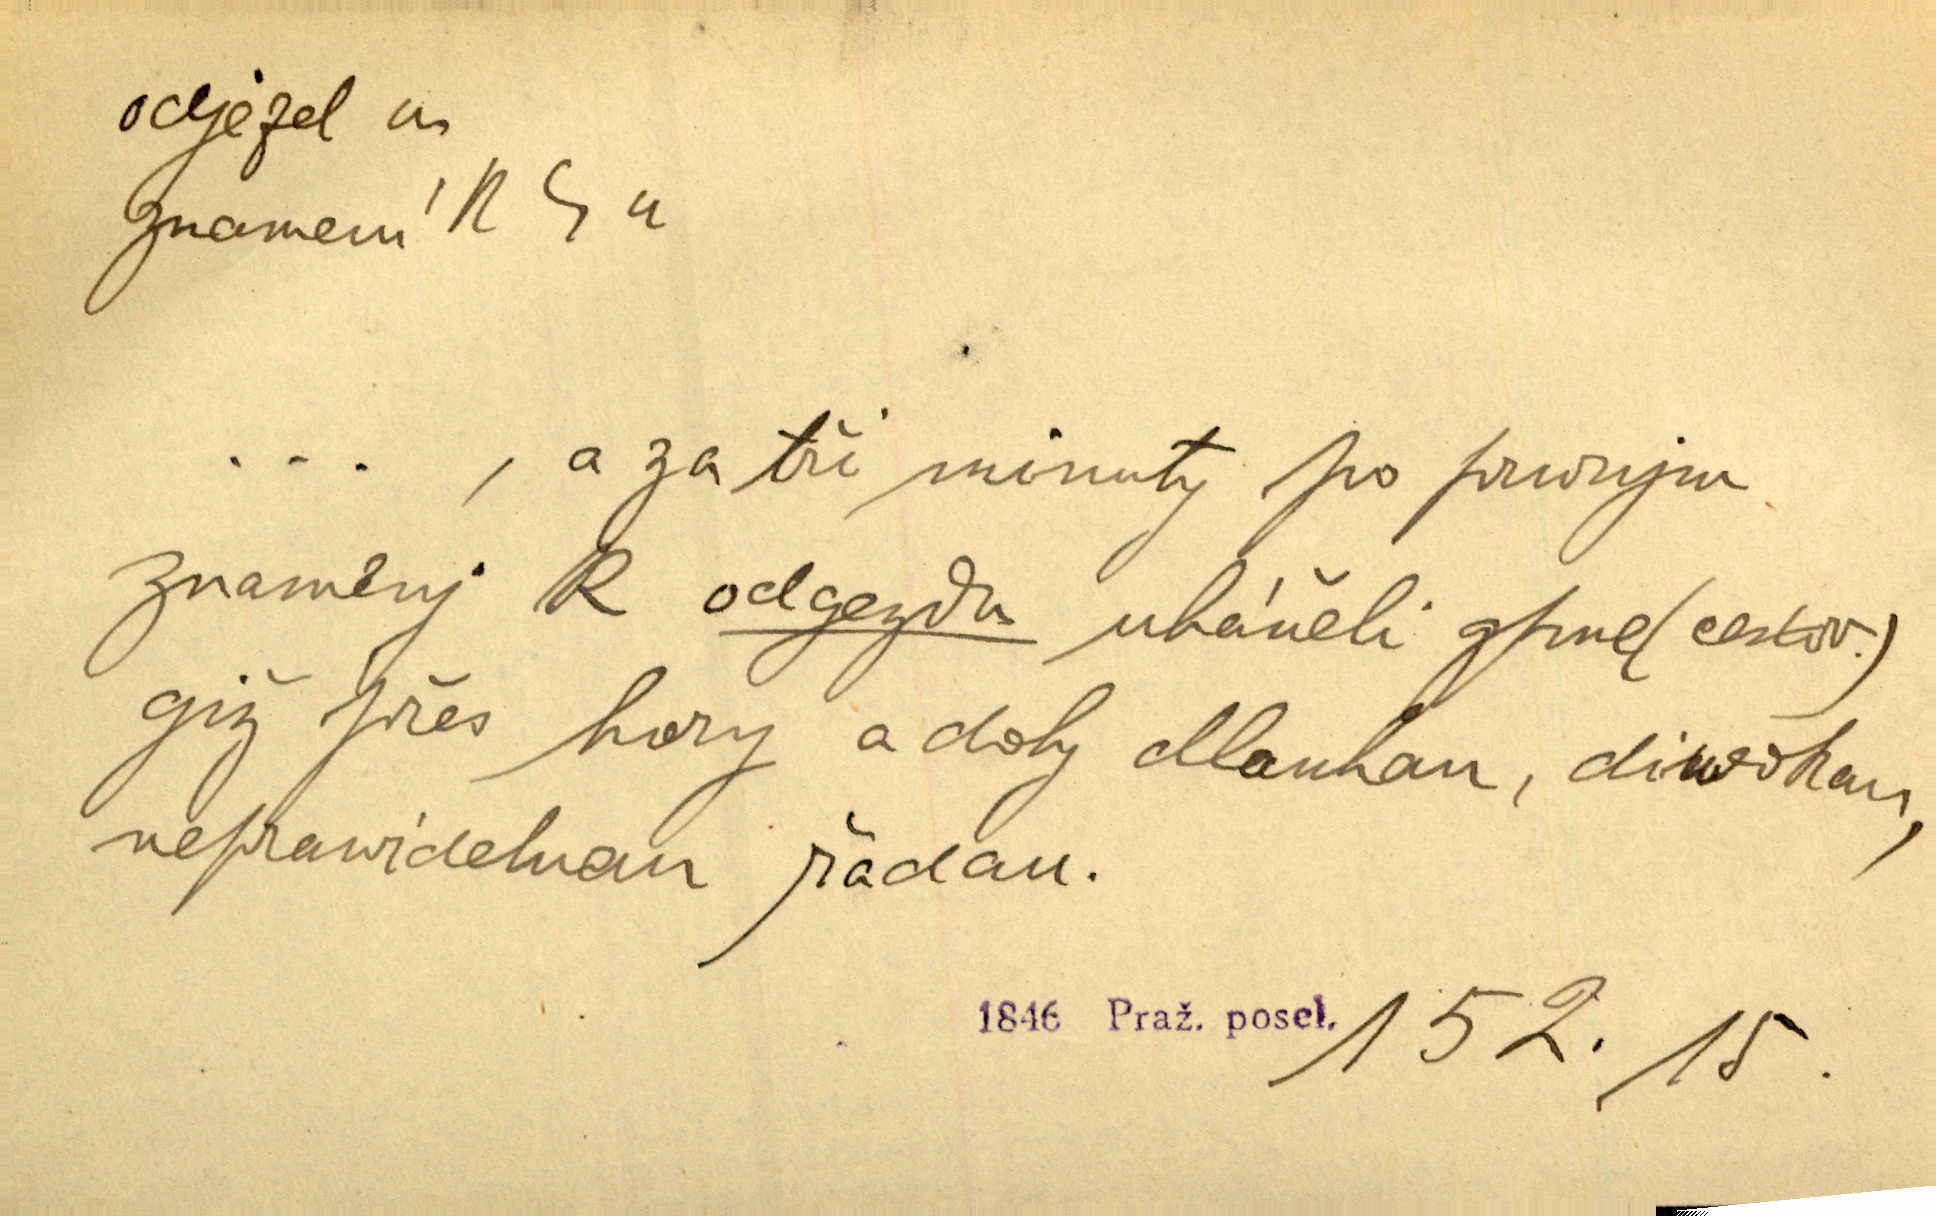 odjezd m
znamení k
. . . , a za tři minuty po prwnjm
znamenj k odgezdu uháněli gsme (cestov.)
giž přes hory a doly dlauhau, diwokau,
neprawidelnau řadau.
1846 Praž. posel. 152. 15.